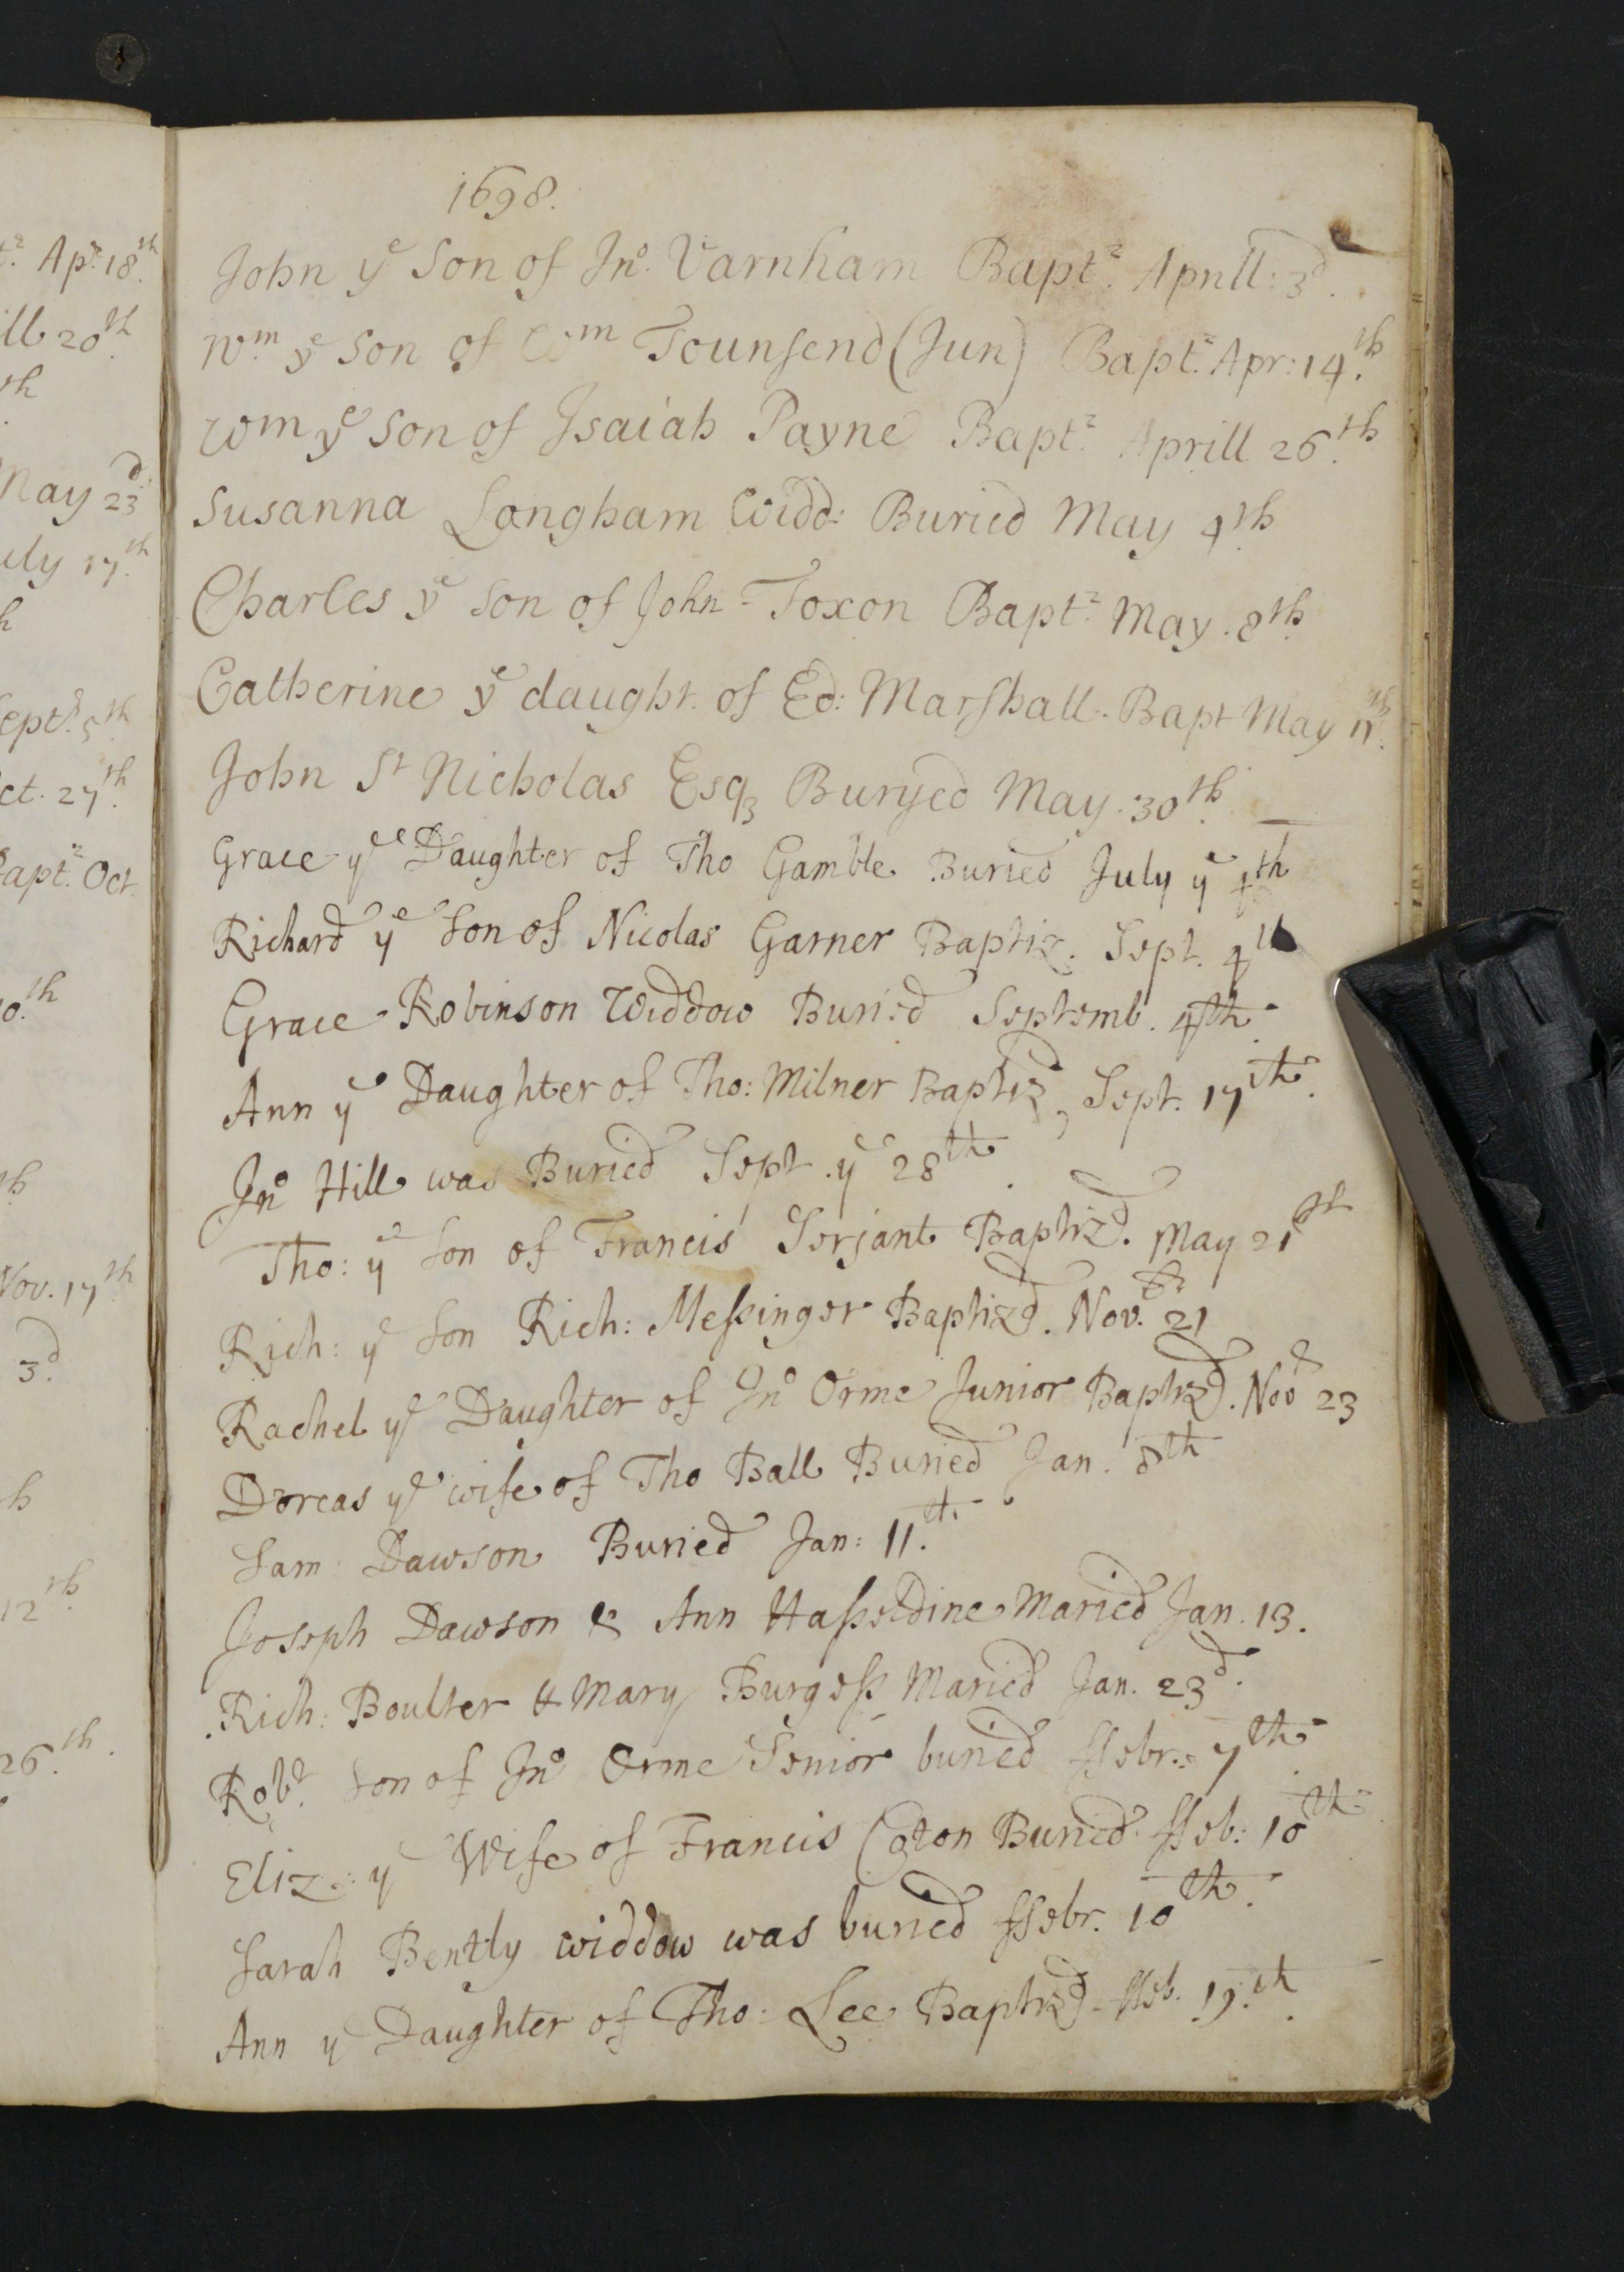 1698.
John yͤ Son of Jno. Varnham Baptz. Aprill: 3d.
Wm. yͤ Son of Wm Tounsend (Jun) Baptz. Apr: 14th.
Wm yͤ Son of Isaiah Payne Baptz. Aprill 26th.
Susanna Langham Widd: Buried May 4th
Charles yͤ Son of John Toxon Baptz. May. 8th.
Catherine yͤ daught. of Ed: Marshall. Bapt May 11th.
John St Nicholas Esqꝫ Buryed May. 30th.
Grace yͤ Daughter of Tho Gamble Buried July yͤ 4th
Richard yͤ Son of Nicolas Garner Baptiz. Sept. 4th
Grace Robinson Widdow Buried Septemb. 4th.
Ann yͤ Daughter of Tho: Milner Baptizd, Sept. 17th.
Jno Hill was Buried Sept. yͤ 28th.
Tho: yͤ Son of Francis Serjant Baptizd. May 21st
Rich: yͤ Son Rich: Messinger Baptizd. Nov. 21
Rachel yͤ Daughter of Jno Orme Junior Baptizd. Nov 23
Dorcas yͤ wife of Tho Ball Buried Jan. 8th
Sam: Dawson Buried Jan: 11th.
Joseph Dawson & Ann Hasseldine Maried Jan. 13.
Rich: Boulter & Mary Burgess Maried Jan. 23d.
Robt. Son of Jno Orme Senior buried ffebr: 7th.
Eliz: yͤ Wife of Francis Coton Buried ffeb: 10th
Sarah Bently widdow was buried ffebr. 10th.
Ann yͤ Daughter of Tho: Lee Baptizd. ffeb. 19th.
Apr. 18th.
20th.
th
May 23d
17th.
Sept. 5th
27th.
Baptz. Oct.
10th.
th
Nov. 17th
3d.
h
12th.
26th.